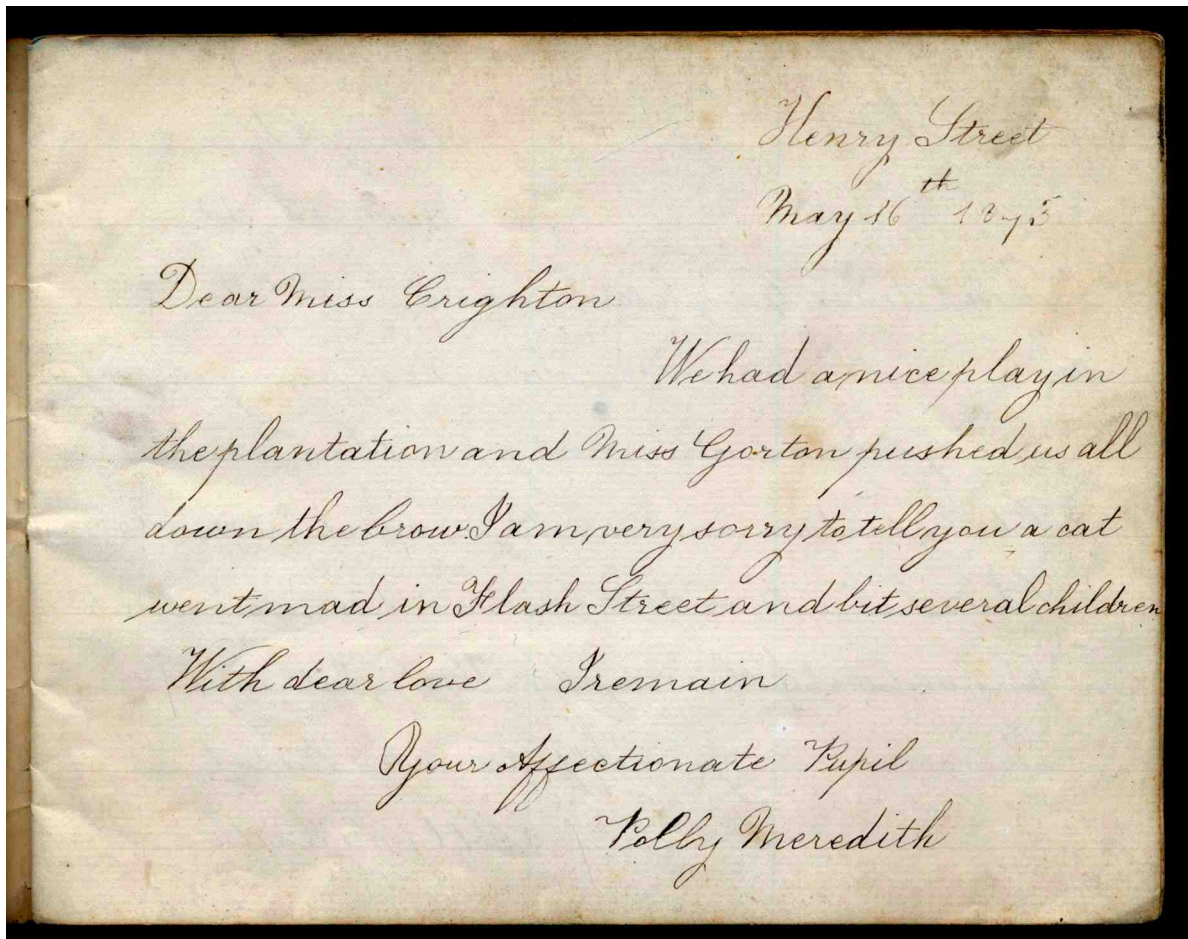 Henry Street
May 16th 1875
Dear Miss Crighton
We had a nice play in
the plantation and Miss Gorton pushed us all
down the brow. I am very sorry to tell you a cat
went mad in Flash Street and bit several children
With dear love I remain
Your Affectionate Pupil
Polly Meredith